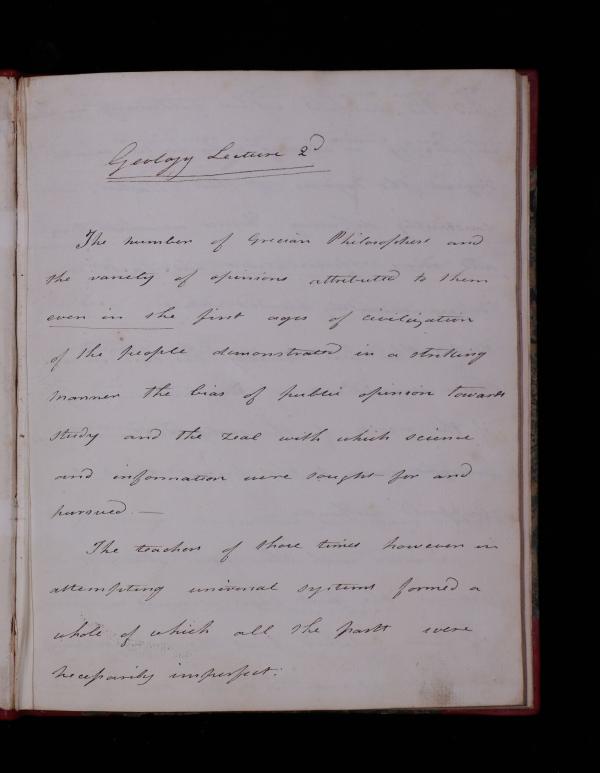 Geology Lecture 2d
The number of Grecian Philosophers and
the variety of opinions attributed to them
even in the first ages of civilization
of the people demonstrated in a striking
manner the bias of public opinion towards
study and the zeal with which science
and information were sought for and
pursued. —
The teachers of those times however in
attempting universal systems formed a
whole of which all the parts were
necessarily imperfect.